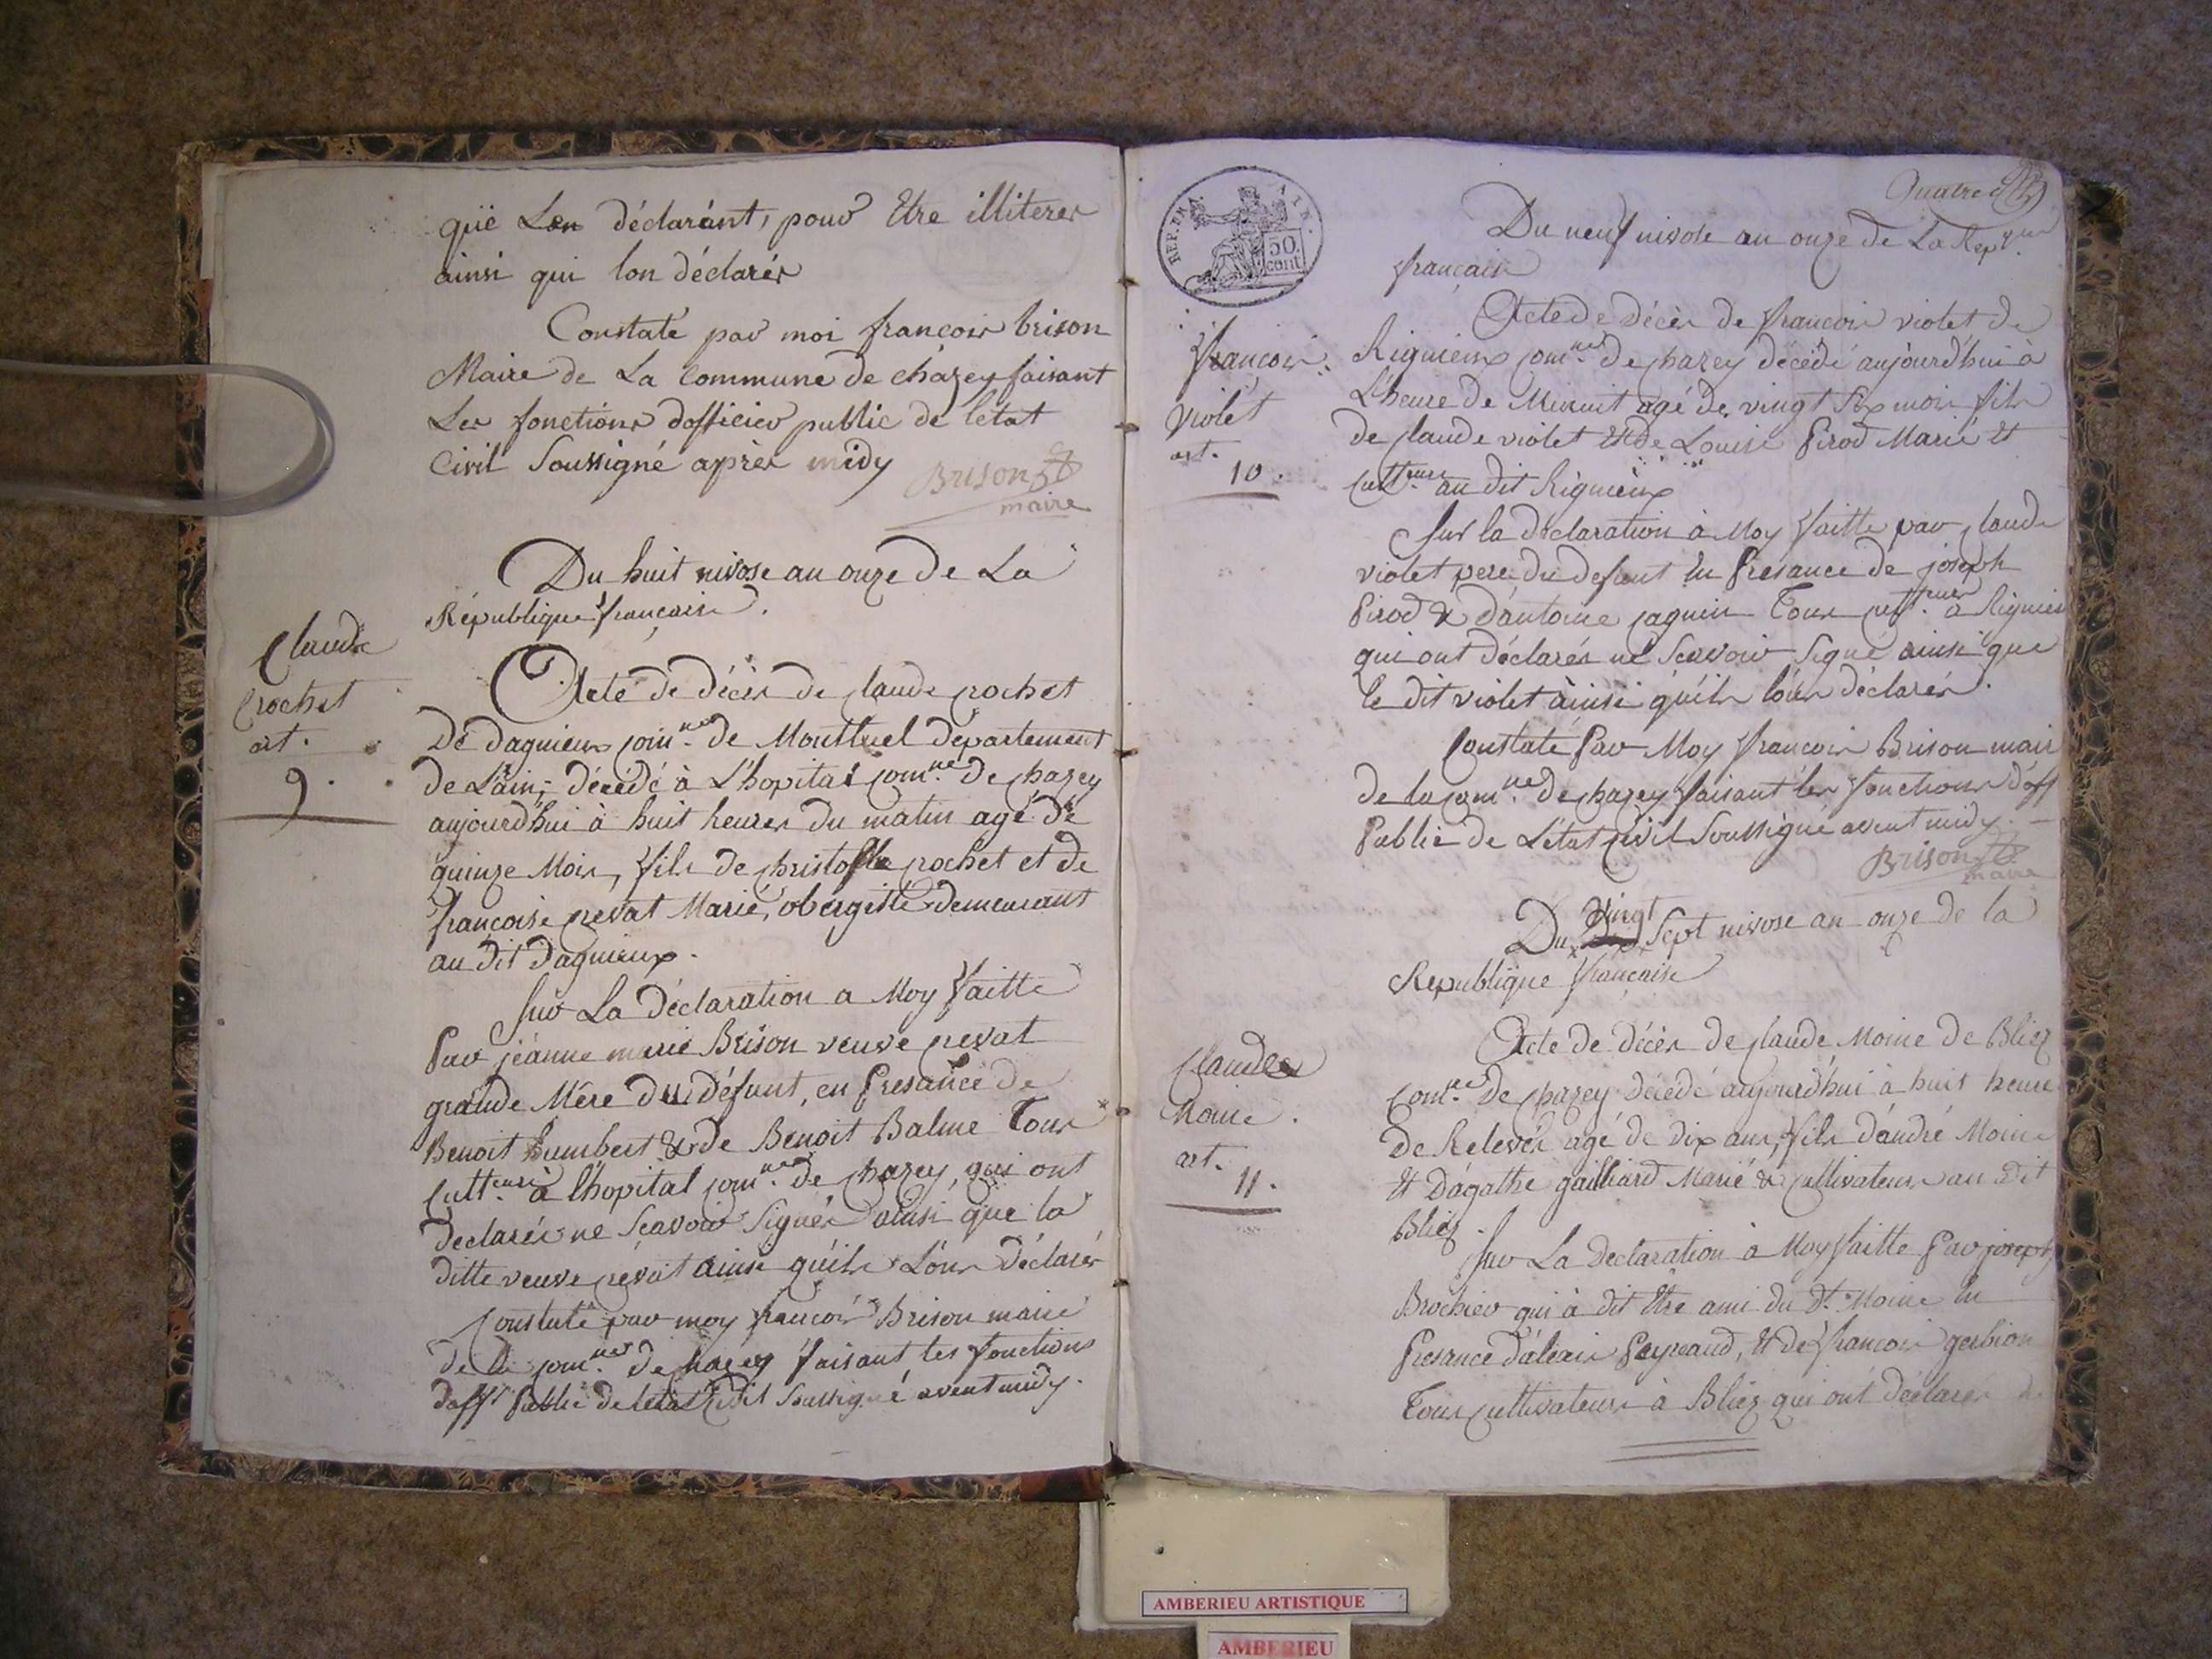 que Les déclarant, pour Etre illiterer
ainsi qui lon déclarér
Constaté par moi francois brison
Maire de La Commune de chazey faisant
Les fonctions d'officier public de letat
Civil Soussigné après midy
Brison
maire
Du huit nivose an onze de La
République française.
Claude
crochet
art.
9.
Acte de décès de claude crochet
De dagnieux com.ne de Montluel département
de L'ain, décédé à L'hopital com.ne de chazey
aujourd'hui à huit heures du matin agé de
quinze Mois, fils de christofle crochet et de
françoise nevat Marié, obergiste demeurant
au dit dagnieux.
Sur La déclaration a Moy faitte
Par jéanne marie Brison veuve nevat
grande Mére du défunt, en Presance de
Benoit humbert & de Benoit Balme Tous
Cult.eurs à l'hopital com.ne de chazey, qui ont
declarés ne Scavoir Signér ainsi que la
ditte veuve nevat ainsi quéils L'ons Déclarér
Constaté par moy françois Brison maire
de la com.ne de chazey faisant les fonctions
doff.r Public de letat Civil Soussigné avent midy.
Quatre
REP. FRA.
50.
cent
Du neuf nivose an onze de La Rep.que
française
françois
Violet
art.
10.
Acte de décès de francois violet de
Rignieux com.ne de chazey décédé aujourd'hui à
L'heure de Minuit agé de vingt Six mois fils
de claude violet et de Louise Pirod Marié et
Cult.eurs au dit Rignieux
Sur la déclaration à Moy faitte par claude
violet pere du defunt En Presance de joseph
Pirod & d'antoine caguin Tous cult.eurs à Rignieu
qui ont déclarés ne Scavoir Signé ainsi que
le dit violet ainsi quéils lóns déclarér.
Constaté Par Moy françois Brison mair
de la com.ne de chazey faisant les fonctions d'off
Public de L'état Civil Soussigné avent midy.
Brison
maire
Du vingt Sept nivose an onze de la
Republique française
Claude
Moine.
art.
11.
Acte de décès de claude Moine de Bliez
Com.ne de chazey décédé aujourd'hui à huit heure
de Relevés agé de dix ans, fils d'andré Moine
Et D'agathe gailliard Marié & cultivateurs au dit
Bliez.
Sur La declaration à Moy faitte Par joseph
Brochier qui à dit Etre ami du dt. Moine En
Presance d'aléxis Peyraud, & de françois gerbion
Tous cultivateurs à Bliez qui ont déclarés
AMBERIEU ARTISTIQUE
AMBERIEU